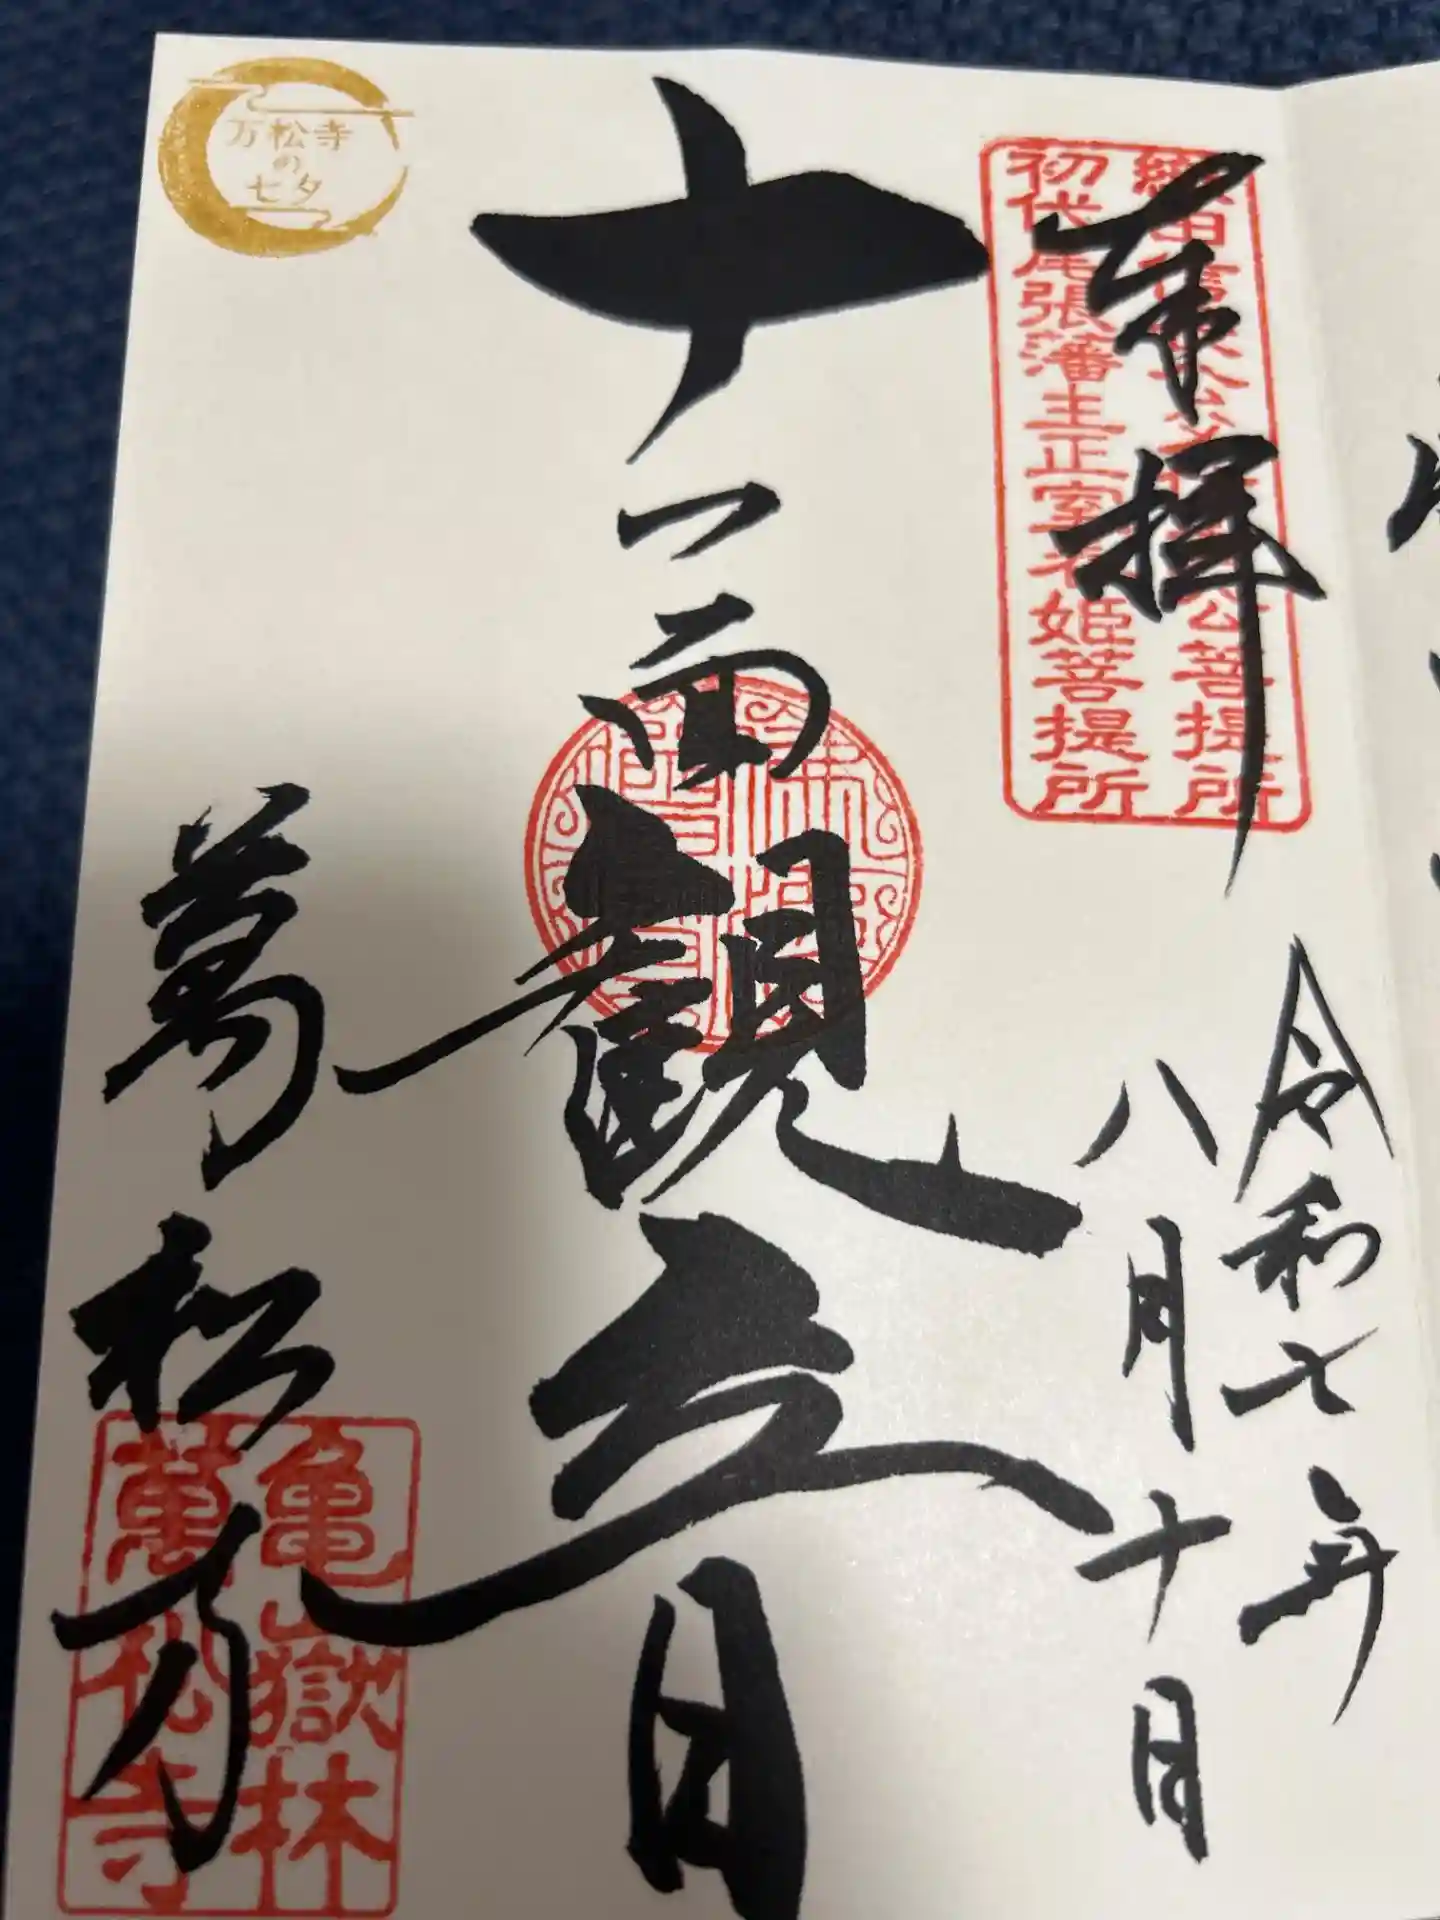 奉拝
織田信長公父信秀公菩提所
初代尾張藩主正室春姫菩提所
令和七年
八月十日
十一面観音
萬松寺
亀嶽林
萬松寺
万松寺
の
七夕